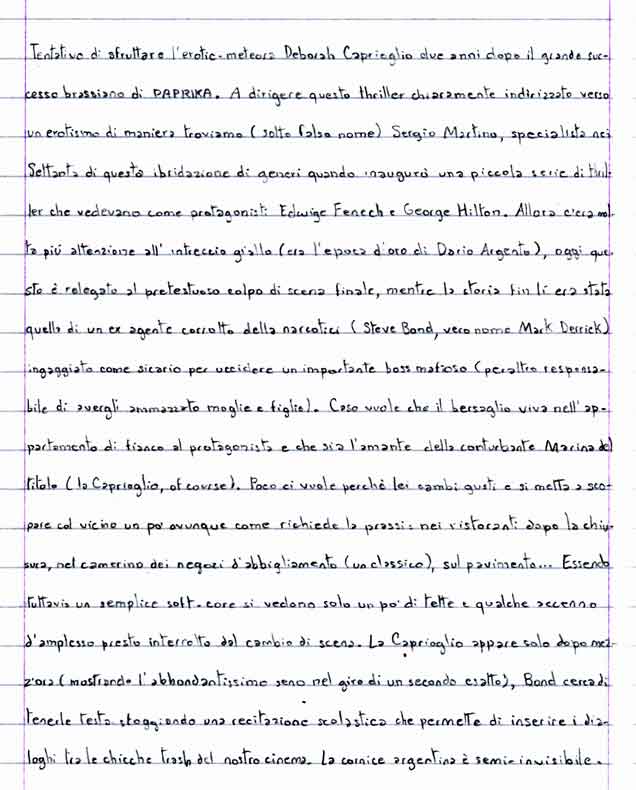 Tentativo di sfruttare l'erotic-meteora Deborah Caprioglio due anni dopo il grande suc-
cesso brassiano di PAPRIKA. A dirigere questo thriller chiaramente indirizzato verso
un erotismo di maniera troviamo (sotto falso nome) Sergio Martino, specialista nei
Settanta di questa ibridazione di generi quando inaugurò una piccola serie di thril-
ler che vedevano come protagonisti Edwige Fenech e George Hilton. Allora c'era mol-
ta più attenzione all'intreccio giallo (era l'epoca d'oro di Dario Argento), oggi que-
sto è relegato al pretestuoso colpo di scena finale, mentre la storia fin lì era stata
quella di un ex agente corrotto della narcotici (Steve Bond, vero nome Mark Derrick)
ingaggiato come sicario per uccidere un importante boss mafioso (peraltro responsa-
bile di avergli ammazzato moglie e figlie). Caso vuole che il bersaglio viva nell'ap-
partamento di fianco al protagonista e che sia l'amante della conturbante Marina del
titolo (la Caprioglio, of course). Poco ci vuole perchè lei cambi gusti e si metta a sco-
pare col vicino un po' ovunque come richiede la prassi: nei ristoranti dopo la chiu-
sura, nel camerino dei negozi d'abbigliamento (un classico), sul pavimento... Essendo
tuttavia un semplice soft-core si vedono solo un po' di tette e qualche accenno
d'amplesso presto interrotto dal cambio di scena. La Caprioglio appare solo dopo mez-
z'ora (mostrando l'abbondantissimo seno nel giro di un secondo esatto), Bond cerca di
tenerle testa sfoggiando una recitazione scolastica che permette di inserire i dia-
loghi tra le chicche trash del nostro cinema. La cornice argentina è semi-invisibile.